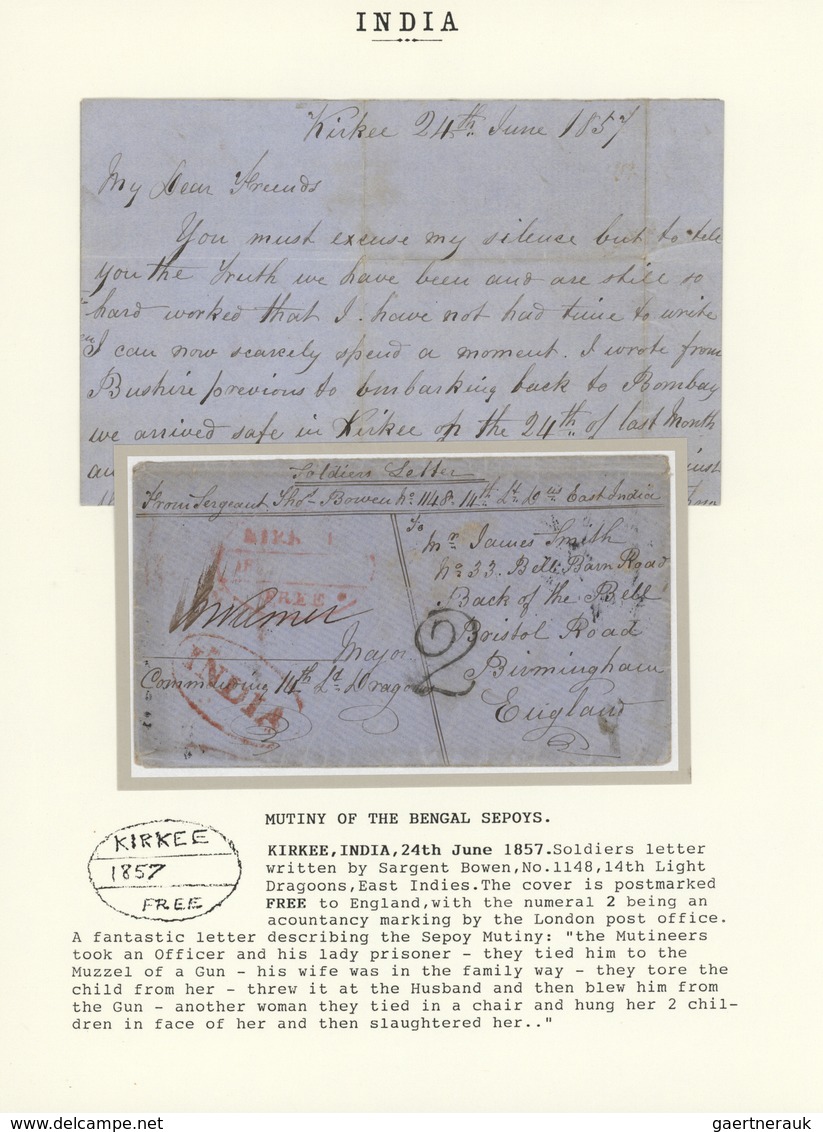 INDIA
Kirkee 24th June 1857
My Dear Freends
You must excuse my silence but to tell
you the Truth we have been and are still so
hard worked that I have not had time to write
I can now scarcely spend a moment. I wrote from
Bushire previous to embarking back to Bombay
we arrived safe in Kirkee on the 24th of last Month
Soldiers Letter
From Sergeant Thos Bowen No 1148. 14th Lt Dns East India
KIRK
FREE
To
Mr James Smith
No 33. Bell Barn Road
Back of the Bell
Bristol Road
Birmingham
England
2
Major
Commanding 14th Lt Dragoons
INDIA
KIRKEE
1857
FREE
MUTINY OF THE BENGAL SEPOYS.
KIRKEE,INDIA,24th June 1857.Soldiers letter
written by Sargent Bowen,No.1148,14th Light
Dragoons,East Indies.The cover is postmarked
FREE to England,with the numeral 2 being an
acountancy marking by the London post office.
A fantastic letter describing the Sepoy Mutiny: "the Mutineers
took an Officer and his lady prisoner - they tied him to the
Muzzel of a Gun - his wife was in the family way - they tore the
child from her - threw it at the Husband and then blew him from
the Gun - another woman they tied in a chair and hung her 2 chil-
dren in face of her and then slaughtered her.."
www.delcampe.net
gaertnerauk